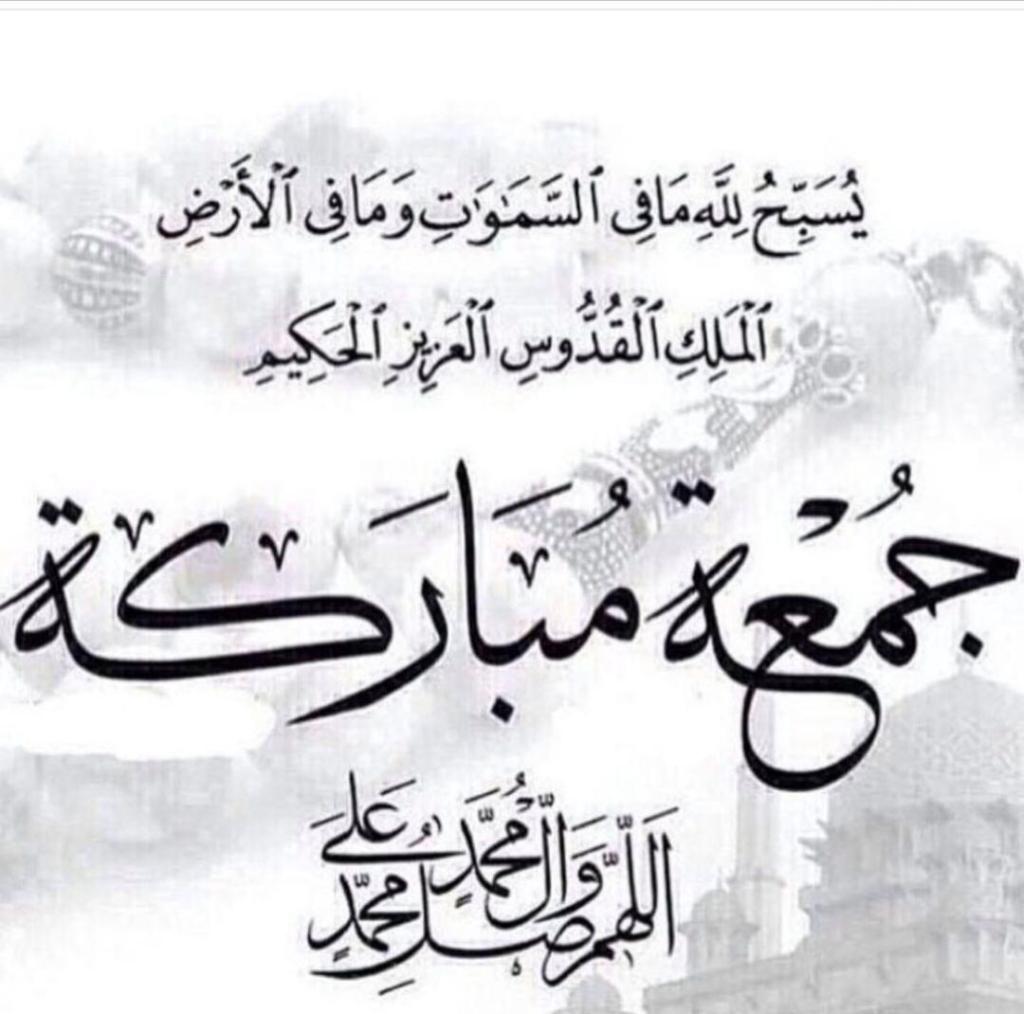 يُسَبِّحُ لِلَّهِ مَا فِي ٱلسَّمَٰوَٰتِ وَمَا فِي ٱلْأَرْضِ
ٱلْمَلِكِ ٱلْقُدُّوسِ ٱلْعَزِيزِ ٱلْحَكِيمِ
جُمُعَة مُبَارَكَة
اَللّٰهُمَّ صَلِّ عَلَىٰ مُحَمَّدٍ وَآلِ مُحَمَّدٍ